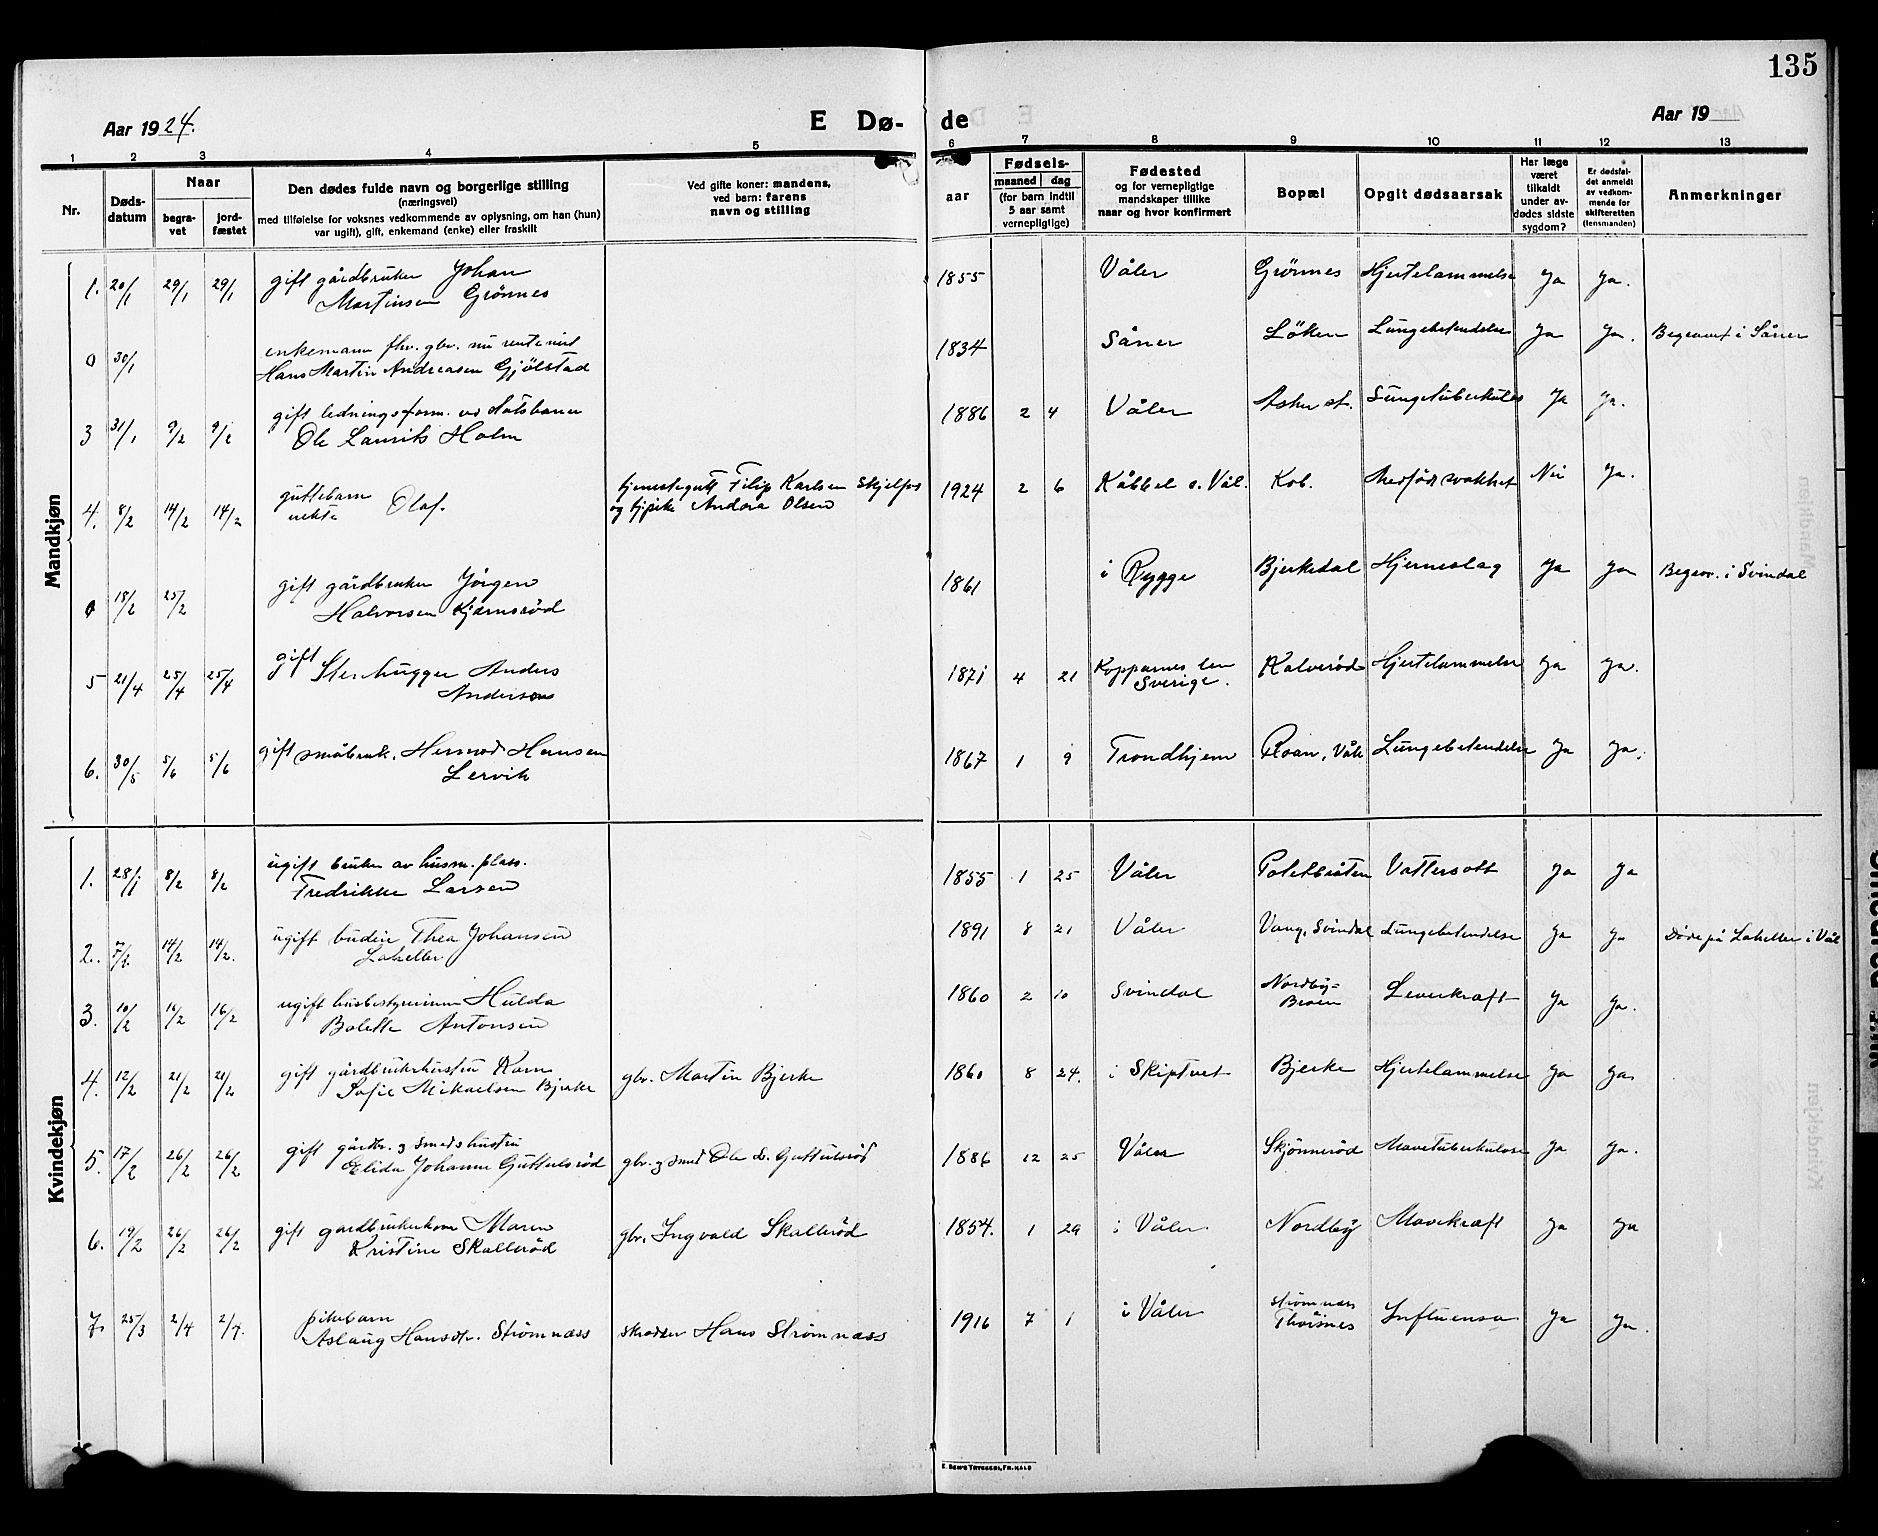 135
Aar 1924.
E Dø-
de
Aar 19
1 2 3 4 5 6 7 8 9 10 11 12 13
Nr.
Døds-
datum
Naar
begra-
vet
jord-
fæstet
Den dødes fulde navn og borgerlige stilling
(næringsvei)
med tilføielse for voksnes vedkommende av oplysning, om han (hun)
var ugift), gift, enkemand (enke) eller fraskilt
Ved gifte koner: mandens,
ved barn: farens
navn og stilling
aar
Fødsels-
maaned dag
(for barn indtil
5 aar samt
vernepligtige)
Fødested
og for vernepligtige
mandskaper tillike
naar og hvor konfirmert
Bopæl
Opgit dødsaarsak
Har læge
været
tilkaldt
under av-
dødes sidste
sygdom?
Er dødsfal-
det anmeldt
av vedkom-
mende for
skifteretten
(lensmanden)
Anmerkninger
Mandkjøn
1. 20/1 29/1 29/1 gift gårdbruker Johan
Martinsen Grönnes
1855 Våler Grönnes Hjertelammelse Ja Ja.
0 30/1 enkemann fhv. gbr. nu
Hans Martin Andreasen Gjölstad
1834 Såner Löken Lungebetendelse Ja Ja. Begravet i Såner
3 31/1 9/2 9/2 gift ledningsform. ved Statsbaner
Ole Laurits Holm
1886 2 4 Våler Asker st. Lungetuberkulos Ja Ja.
4. 8/2 14/2 14/2 guttebarn
uekte Olaf.
tjenestegutt Filip Karlsen Skjelfos
og Andora Olsen
1924 2 6 Kåbbel i Vål. Kob. Medfødt svakhet Nei Ja.
0 18/2 25/2 gift gårdbruker Jörgen
Halvorsen Kjærnsröd
1861 i Rygge Bjerkedal Hjerneslag Ja Ja Begrav. i Svindal
5 21/4 25/4 25/4 gift Stenhugger Anders
Anderson
1871 4 21 Kopparnes len
Sverige. Kalveröd Hjertelammelse Ja Ja.
6. 30/5 5/6 5/6 gift småbruk. Hermod Hansen
Lervik
1867 1 9 Trondhjem Roan, Vål. Lungebetendelse Ja Ja.
Kvindekjøn
1. 28/1 8/2 8/2 ugift bruker av husm. plass.
Fredrikke Larsen
1855 1 25 Våler Vattersott Ja Ja
2. 7/2 14/2 14/2. ugift budeie Thea Johansen
Lakeller
1891 8 21 Våler Vang, Svindal Lungebetendelse Ja Ja Döde på Lakeller i Vål
3. 10/2 16/2 16/2 ugift husbestyrerinne Hulda
Bolette Antonsen
1860 2 10 Svindal Nordby-
Braten Leverkræft Ja Ja.
4. 12/2 21/2 21/2 gift gårdbrukerhustru Karn
Sofie Mikaelsen Bjerke
gbr. Martin Bjerke
1860 8 24. i Skiptvet Bjerke Hjertelammelse Ja Ja
5. 17/2 26/2 26/2 gift gårdbr. og smedshustru
Elida Johanne Guttulsröd
gbr. og smed Ole L. Guttulsröd
1886 12 25 Våler Skjönneröd Mavetuberkulose Ja Ja.
6. 19/2 26/2 26/2 gift gardbrukerkone Maren
Kristine Skalleröd
gbr. Ingvald Skalleröd
1854. 1 29 i Våler Nordby Mavekræft Ja Ja
7. 25/3 2/4 2/4. pikebarn
Aslaug Hansdtr. Strömnæss
skredder Hans Strömnæss
1916 7 1 i Våler Strömnæss
Thorsnes Influensa Ja Ja.
E. Sem's Trykkeri, Fr.hald